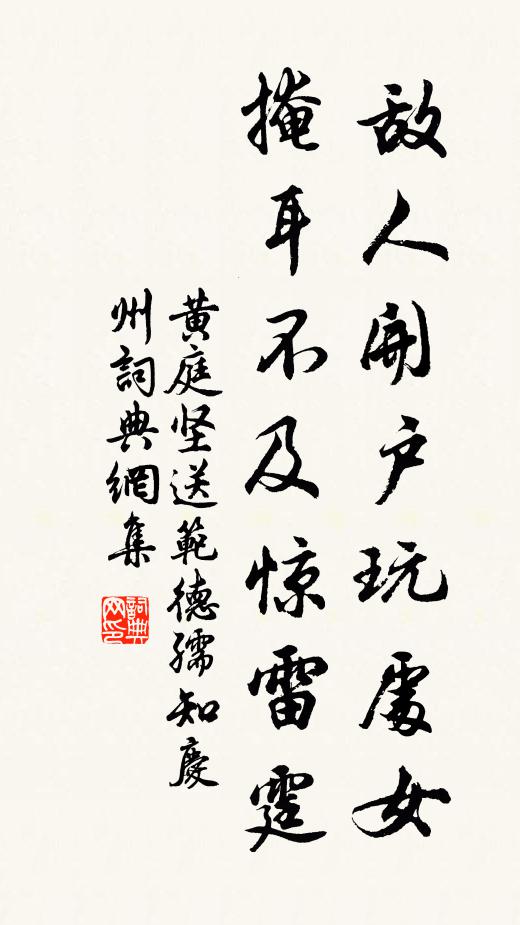 敌人開户玩處女
掩耳不及惊雷霆
黄庭坚送範德孺知慶
州詞典網集
詞典
网印